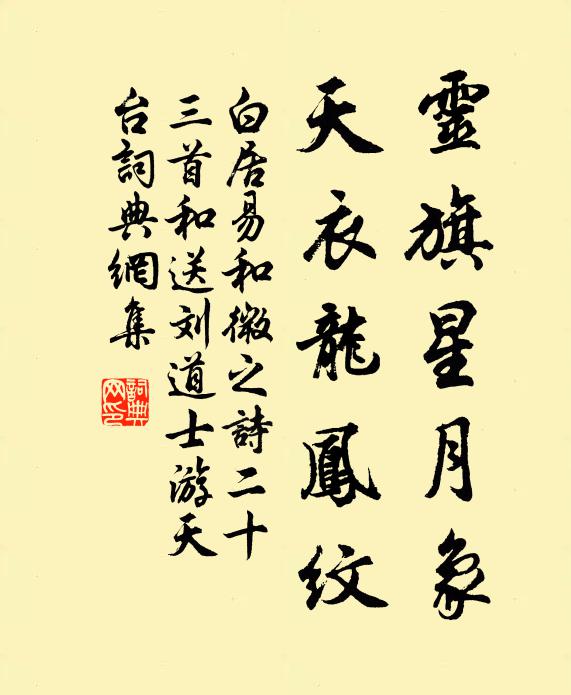 靈旗星月象
天衣龍鳳紋
白居易和微之詩二十
三首和送刘道士游天
台詞典網集
詞典网印